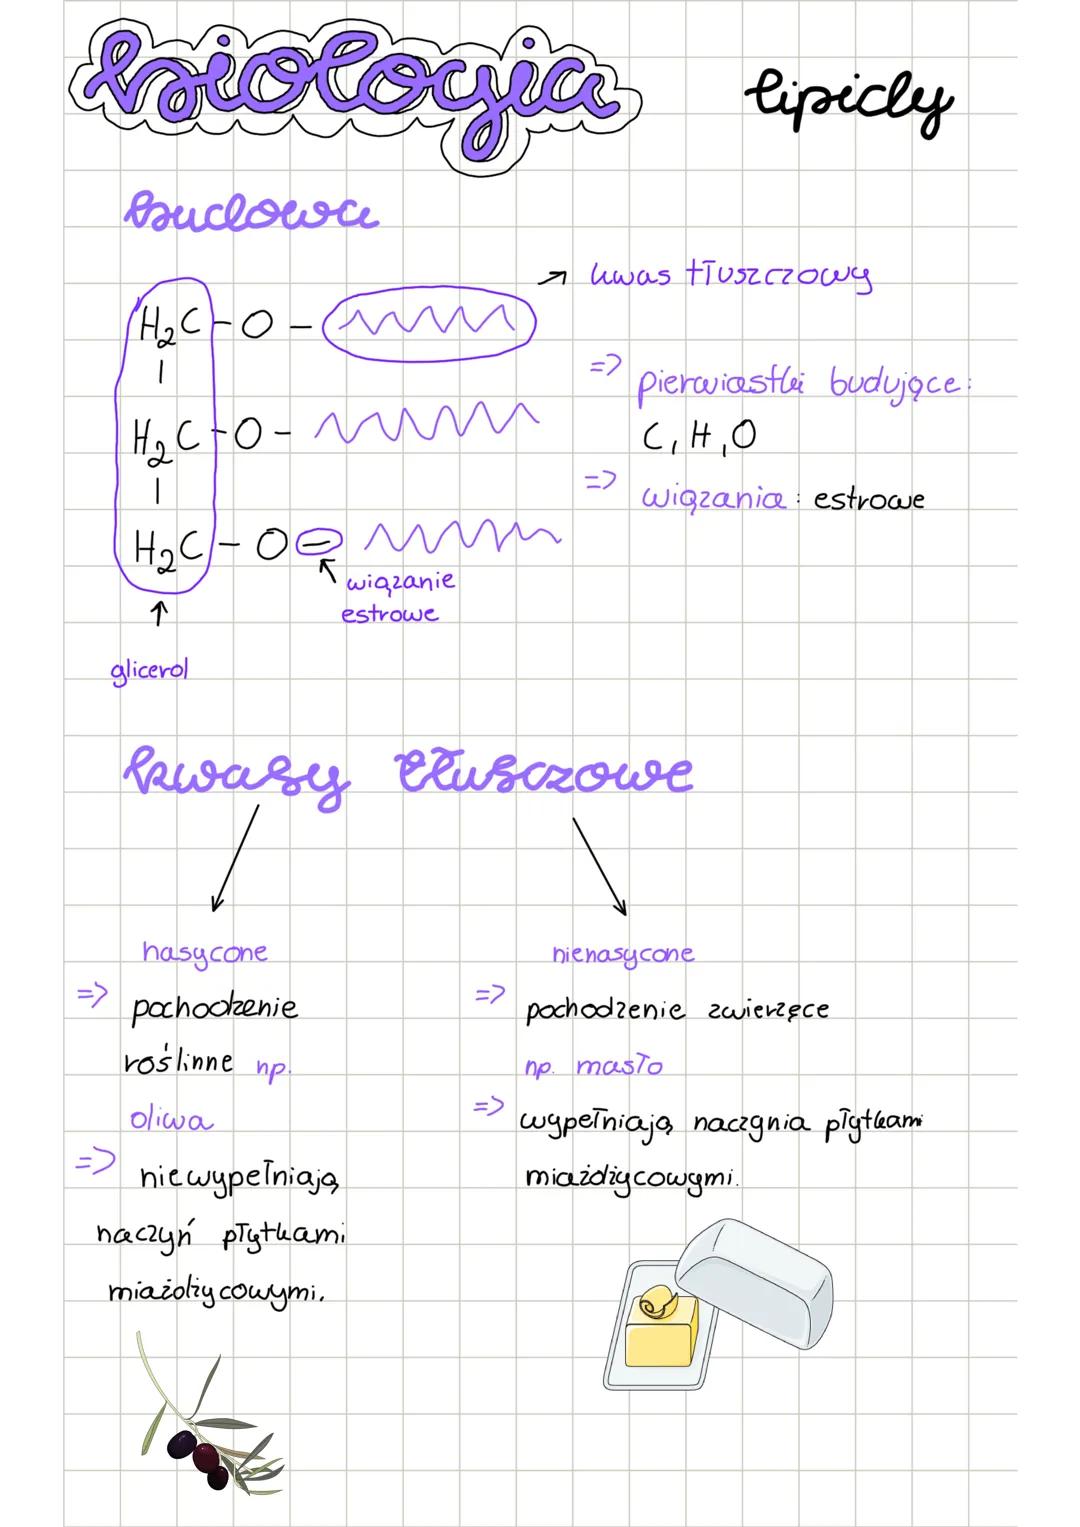 biologia
lipidy
budowa
kwas tłuszczowy
H₂C - O -
|
H₂C - O -
|
H₂C - O -
wiązanie
estrowe
glicerol
=> pierwiastki budujące:
C, H, O
=> wiązania: estrowe
kwasy tłuszczowe
nasycone
=> pochodzenie
roślinne np.
oliwa
=> nie wypełniają
naczyń płytkami
miażdżycowymi.
nienasycone
=> pochodzenie zwierzęce
np. masło
=> wypełniają naczynia płytkami
miażdżycowymi.